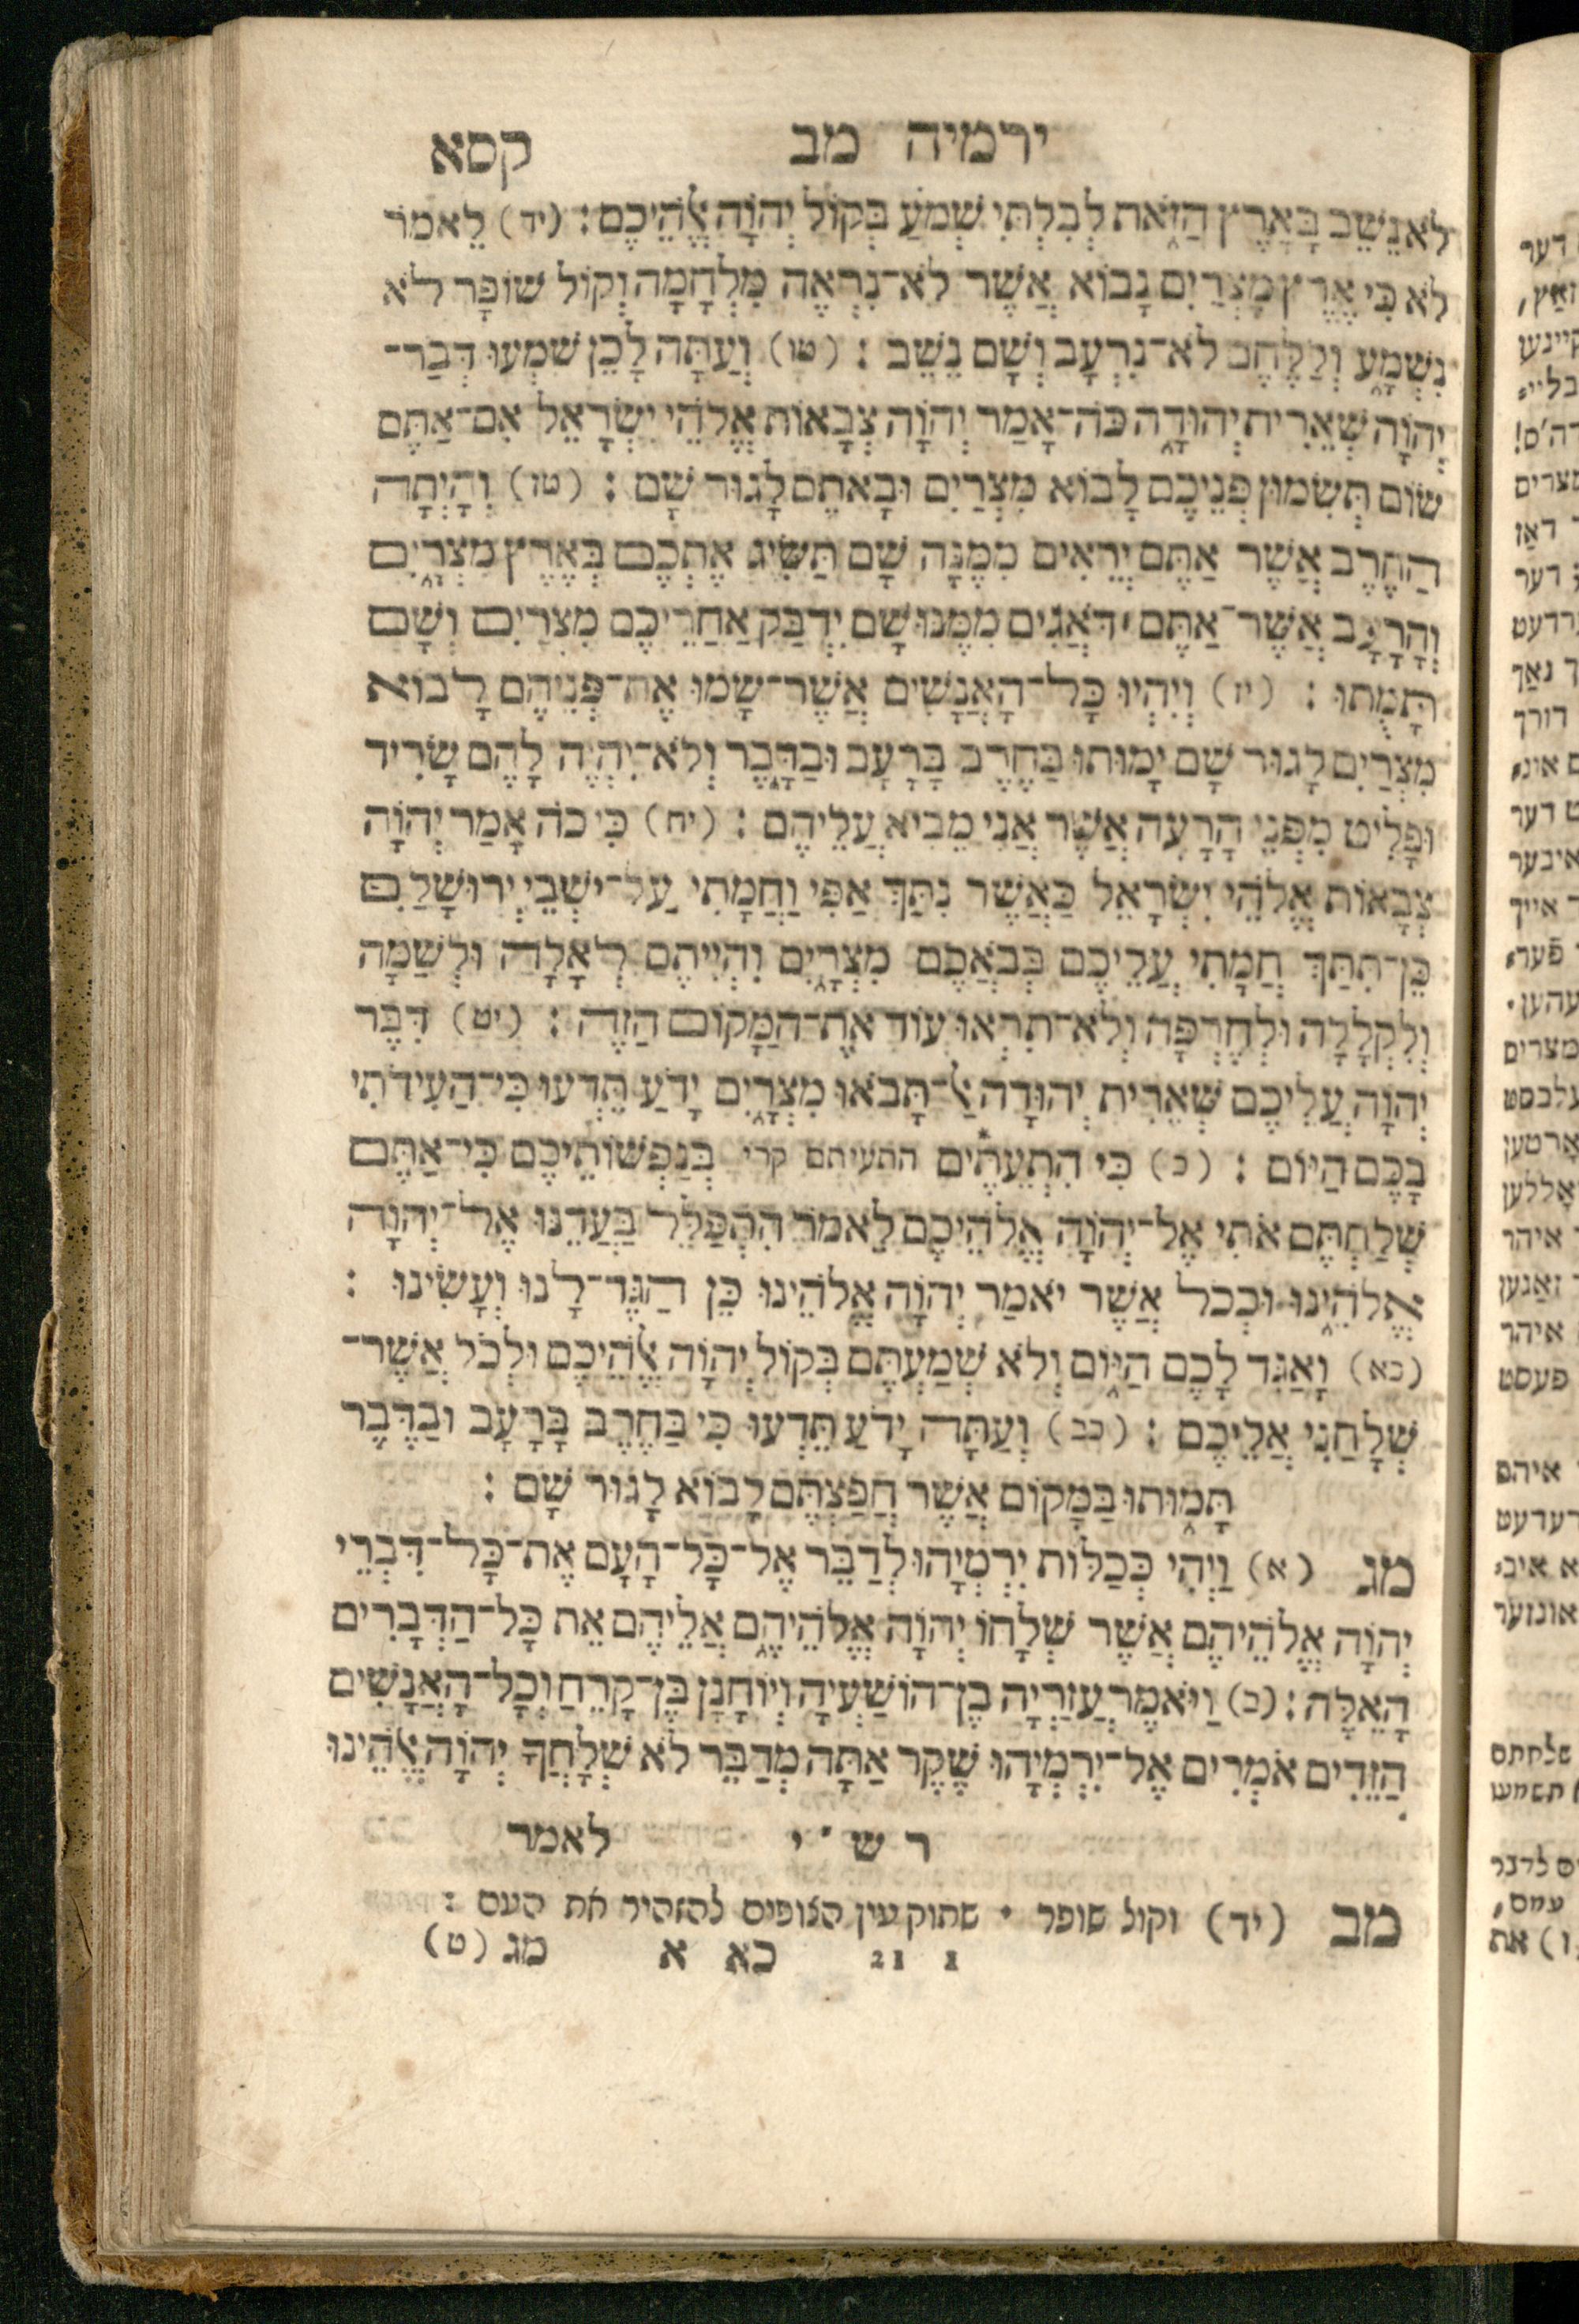 ירמיה מב קסא
לֹא נֵשֵׁב בָּאָרֶץ הַזֹּאת לְבִלְתִּי שְׁמֹעַ בְּקוֹל יְהוָֹה אֱלֹהֵיכֶם : (יד) לֵאמֹר
לֹא כִּי אֶרֶץ מִצְרַיִם נָבוֹא אֲשֶׁר לֹא־נִרְאֶה מִלְחָמָה וְקוֹל שׁוֹפָר לֹא
נִשְׁמָע וְלַלֶּחֶם לֹא־נִרְעָב וְשָׁם נֵשֵׁב : (טו) וְעַתָּה לָכֵן שִׁמְעוּ דְבַר־
יְהוָֹה שְׁאֵרִית יְהוּדָה כֹּה־אָמַר יְהוָֹה צְבָאוֹת אֱלֹהֵי יִשְׂרָאֵל אִם־אַתֶּם
שׂוֹם תְּשִׂמוּן פְּנֵיכֶם לָבוֹא מִצְרַיִם וּבָאתֶם לָגוּר שָׁם : (טז) וְהָיְתָה
הַחֶרֶב אֲשֶׁר אַתֶּם יְרֵאִים מִמֶּנָּה שָׁם תַּשִּׂיג אֶתְכֶם בְּאֶרֶץ מִצְרָיִם
וְהָרָעָב אֲשֶׁר־אַתֶּם דֹּאֲגִים מִמֶּנּוּ שָׁם יִדְבַּק אַחֲרֵיכֶם מִצְרַיִם וְשָׁם
תָּמֻתוּ : (יז) וְיִהְיוּ כָּל־הָאֲנָשִׁים אֲשֶׁר־שָׂמוּ אֶת־פְּנֵיהֶם לָבוֹא
מִצְרַיִם לָגוּר שָׁם יָמוּתוּ בַּחֶרֶב בָּרָעָב וּבַדָּבֶר וְלֹא־יִהְיֶה לָהֶם שָׂרִיד
וּפָלִיט מִפְּנֵי הָרָעָה אֲשֶׁר אֲנִי מֵבִיא עֲלֵיהֶם : (יח) כִּי כֹה אָמַר יְהוָֹה
צְבָאוֹת אֱלֹהֵי יִשְׂרָאֵל כַּאֲשֶׁר נִתַּךְ אַפִּי וַחֲמָתִי עַל־יֹשְׁבֵי יְרוּשָׁלַםִ
כֵּן־תִּתַּךְ חֲמָתִי עֲלֵיכֶם בְּבֹאֲכֶם מִצְרָיִם וִהְיִיתֶם לְאָלָה וּלְשַׁמָּה
וְלִקְלָלָה וּלְחֶרְפָּה וְלֹא־תִרְאוּ עוֹד אֶת־הַמָּקוֹם הַזֶּה : (יט) דִּבֶּר
יְהוָֹה עֲלֵיכֶם שְׁאֵרִית יְהוּדָה אַל־תָּבֹאוּ מִצְרָיִם יָדֹעַ תֵּדְעוּ כִּי־הַעִידֹתִי
בָכֶם הַיּוֹם : (כ) כִּי הִתְעֵתֶים* התעיתם קרי בְּנַפְשׁוֹתֵיכֶם כִּי־אַתֶּם
שְׁלַחְתֶּם אֹתִי אֶל־יְהוָֹה אֱלֹהֵיכֶם לֵאמֹר הִתְפַּלֵּל בַּעֲדֵנוּ אֶל־יְהוָֹה
אֱלֹהֵינוּ וּכְכֹל אֲשֶׁר יֹאמַר יְהוָֹה אֱלֹהֵינוּ כֵּן הַגֶּד־לָנוּ וְעָשִׂינוּ :
(כא) וָאַגִּד לָכֶם הַיּוֹם וְלֹא שְׁמַעְתֶּם בְּקוֹל יְהוָֹה אֱלֹהֵיכֶם וּלְכֹל אֲשֶׁר־
שְׁלָחַנִי אֲלֵיכֶם : (כב) וְעַתָּה יָדֹעַ תֵּדְעוּ כִּי בַּחֶרֶב בָּרָעָב וּבַדֶּבֶר
תָּמוּתוּ בַּמָּקוֹם אֲשֶׁר חֲפַצְתֶּם לָבוֹא לָגוּר שָׁם :
מג (א) וַיְהִי כְּכַלּוֹת יִרְמְיָהוּ לְדַבֵּר אֶל־כָּל־הָעָם אֶת־כָּל־דִּבְרֵי
יְהוָֹה אֱלֹהֵיהֶם אֲשֶׁר שְׁלָחוֹ יְהוָֹה אֱלֹהֵיהֶם אֲלֵיהֶם אֵת כָּל־הַדְּבָרִים
הָאֵלֶּה : (ב) וַיֹּאמֶר עֲזַרְיָה בֶן־הוֹשַׁעְיָה וְיוֹחָנָן בֶּן־קָרֵחַ וְכָל־הָאֲנָשִׁים
הַזֵּדִים אֹמְרִים אֶל־יִרְמְיָהוּ שֶׁקֶר אַתָּה מְדַבֵּר לֹא שְׁלָחֲךָ יְהוָֹה אֱלֹהֵינוּ
רש"י לאמר
מב (יד) וקול שופר • שתוקעין הצופים להזהיר את העם :
1 21 כא א מג (ט)
דער
קיינש
מצרים
דאַז
דער
נאַך
דורך
דער
איבער
אייך
מצרים
איהר
זאַגען
איהר
פעסט
איהם
אונזער
שלחתם
תשמעו
לדבר
עמם,
את